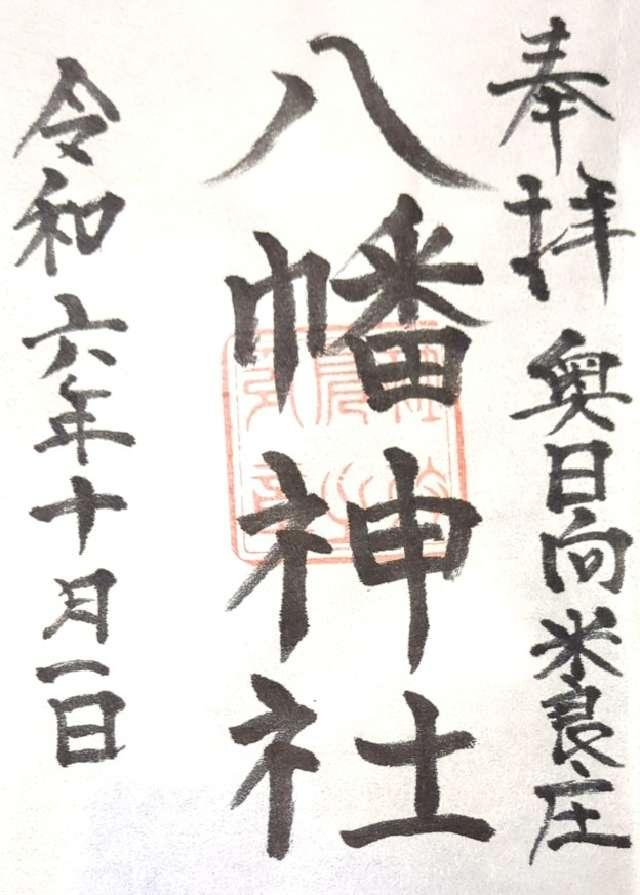 奉拝 奥日向米良庄
八幡神社
令和六年十月一日